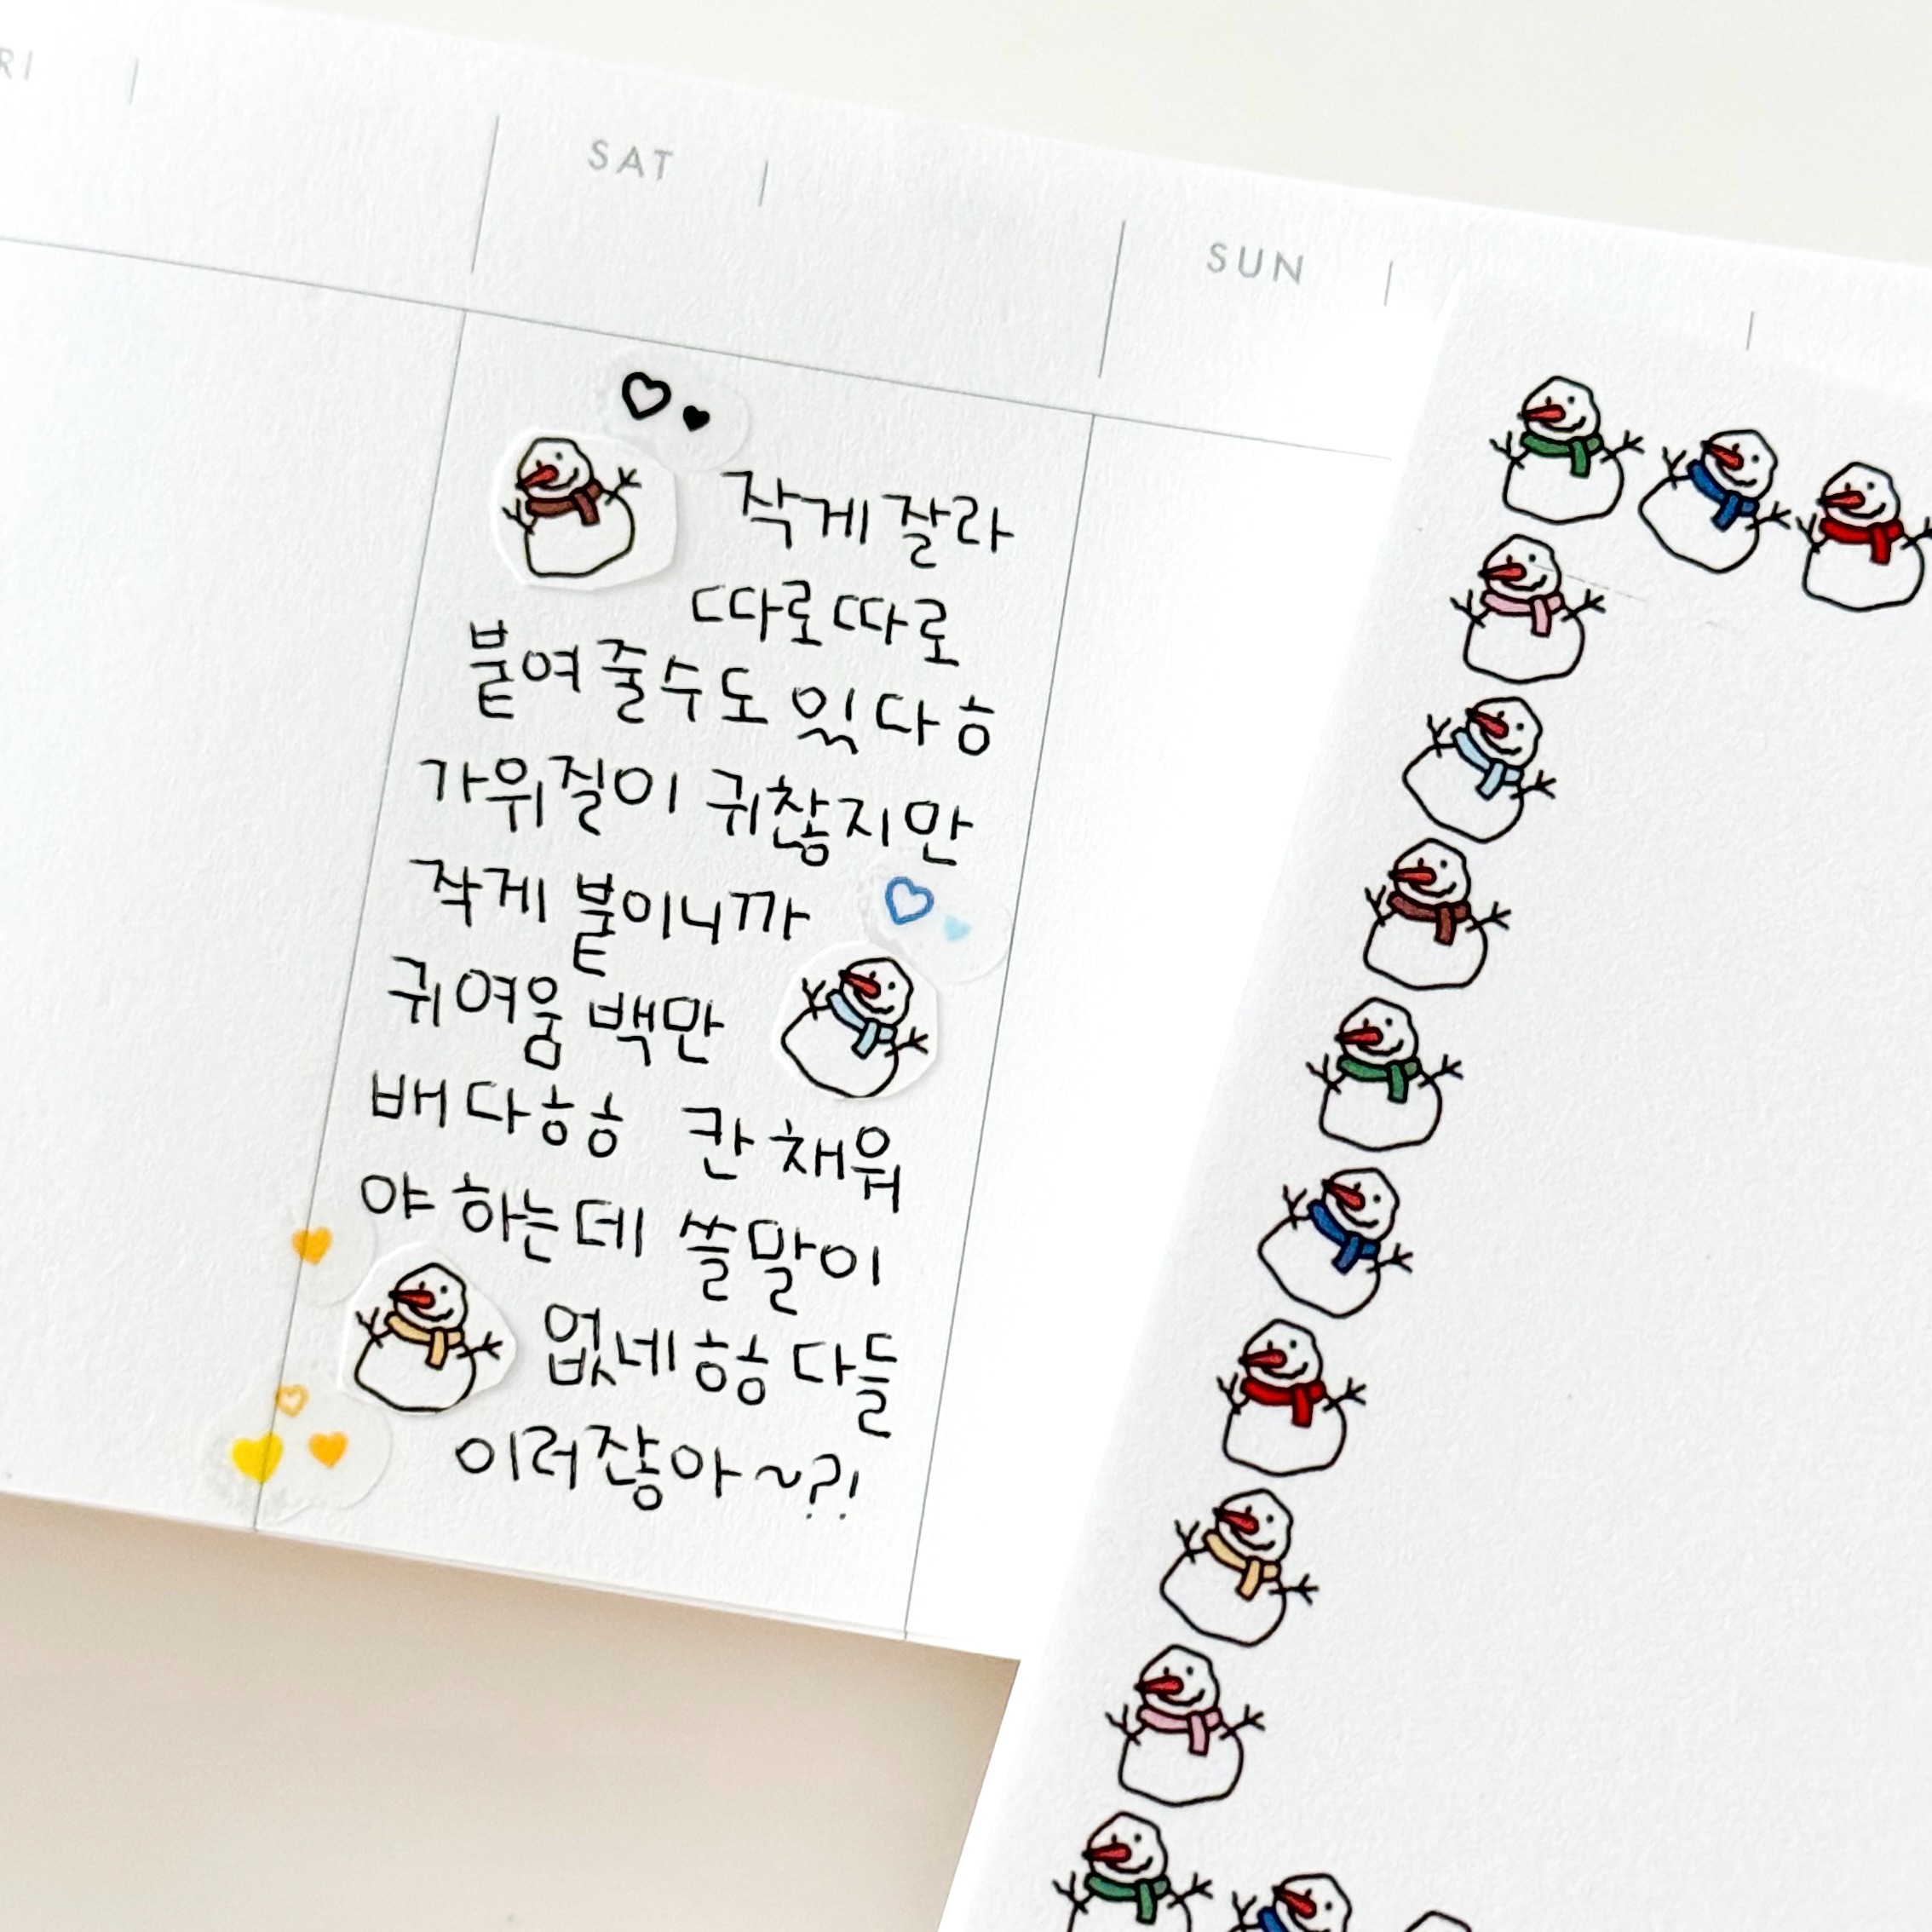 RI
SAT
SUN
작게 잘라
따로따로
붙여 줄수도 있다ㅎ
가위질이 귀찮지만
작게 붙이니까
귀여움 백만
배다ㅎㅎ 칸 채워
야 하는데 쓸말이
없네ㅎㅎ 다들
이러잖아~?!